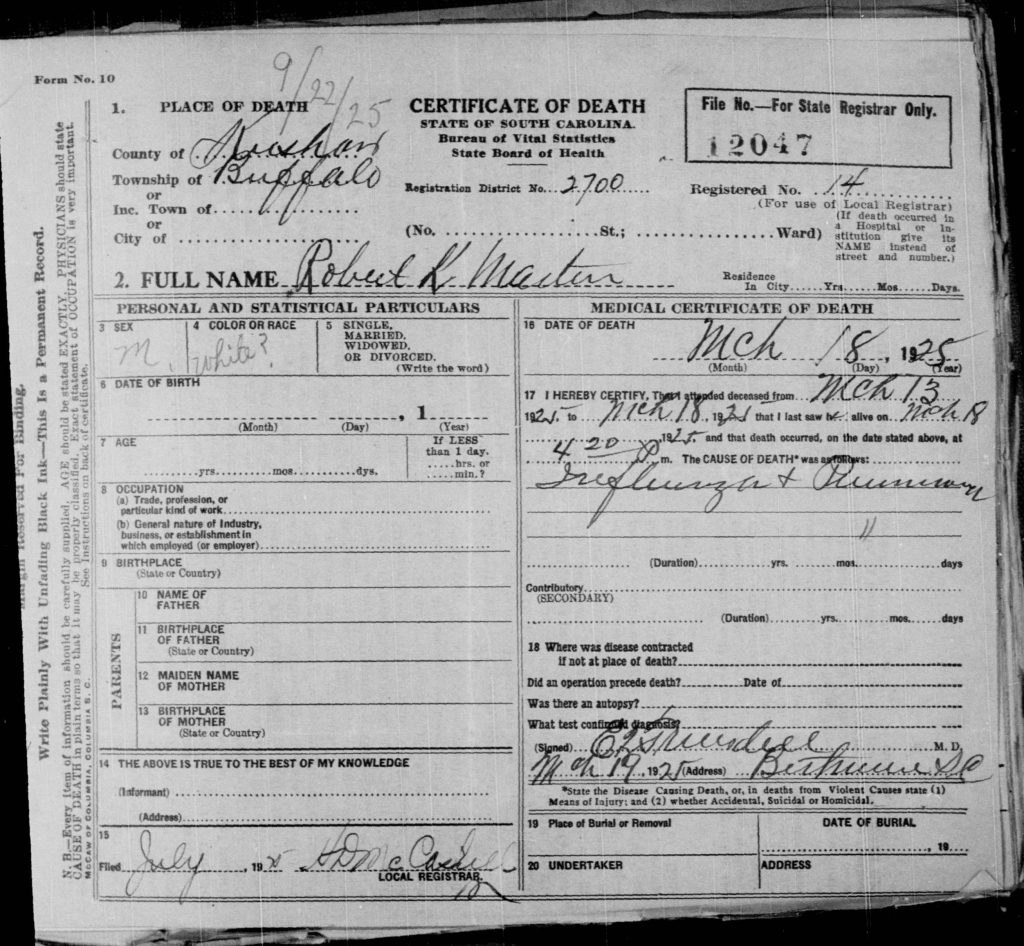 Form No. 10
9/22/25
1. PLACE OF DEATH
County of Kershaw
Township of Buffalo
or
Inc. Town of
or
City of
CERTIFICATE OF DEATH
STATE OF SOUTH CAROLINA.
Bureau of Vital Statistics
State Board of Health
File No.—For State Registrar Only.
12047
Registration District No. 2700
Registered No. 14
(For use of Local Registrar)
(No. St.; Ward)
(If death occurred in
a Hospital or In-
stitution give its
NAME instead of
street and number.)
2. FULL NAME Robert K. Martin
Residence
In City Yrs. Mos. Days.
PERSONAL AND STATISTICAL PARTICULARS
3 SEX
M.
4 COLOR OR RACE
White?
5 SINGLE,
MARRIED,
WIDOWED,
OR DIVORCED.
(Write the word)
6 DATE OF BIRTH
, 1
(Month) (Day) (Year)
7 AGE
yrs. mos. dys.
If LESS
than 1 day.
hrs. or
min.?
8 OCCUPATION
(a) Trade, profession, or
particular kind of work
(b) General nature of Industry,
business, or establishment in
which employed (or employer)
9 BIRTHPLACE
(State or Country)
PARENTS
10 NAME OF
FATHER
11 BIRTHPLACE
OF FATHER
(State or Country)
12 MAIDEN NAME
OF MOTHER
13 BIRTHPLACE
OF MOTHER
(State or Country)
14 THE ABOVE IS TRUE TO THE BEST OF MY KNOWLEDGE
(Informant)
(Address)
15
Filed July, 1925
LOCAL REGISTRAR.
MEDICAL CERTIFICATE OF DEATH
16 DATE OF DEATH
Mch 18, 1925
(Month) (Day) (Year)
17 I HEREBY CERTIFY, That I attended deceased from Mch 13
1925 to Mch 18 1925 that I last saw h alive on Mch 18
1925 and that death occurred, on the date stated above, at
4 20 P m. The CAUSE OF DEATH* was as follows:
Influenza +
"
(Duration) yrs. mos. days
Contributory
(SECONDARY)
(Duration) yrs. mos. days
18 Where was disease contracted
if not at place of death?
Did an operation precede death? Date of
Was there an autopsy?
What test confirmed diagnosis?
(Signed) M. D.
Mch 19 1925 (Address)
*State the Disease Causing Death, or, in deaths from Violent Causes state (1)
Means of Injury; and (2) whether Accidental, Suicidal or Homicidal.
19 Place of Burial or Removal
DATE OF BURIAL
, 19
20 UNDERTAKER
ADDRESS
Margin Reserved For Binding.
Write Plainly With Unfading Black Ink—This Is a Permanent Record.
N. B.—Every item of information should be carefully supplied. AGE should be stated EXACTLY. PHYSICIANS should state
CAUSE OF DEATH in plain terms so that it may be properly classified. Exact statement of OCCUPATION is very important.
See Instructions on back of certificate.
McCAW OF COLUMBIA, COLUMBIA S. C.